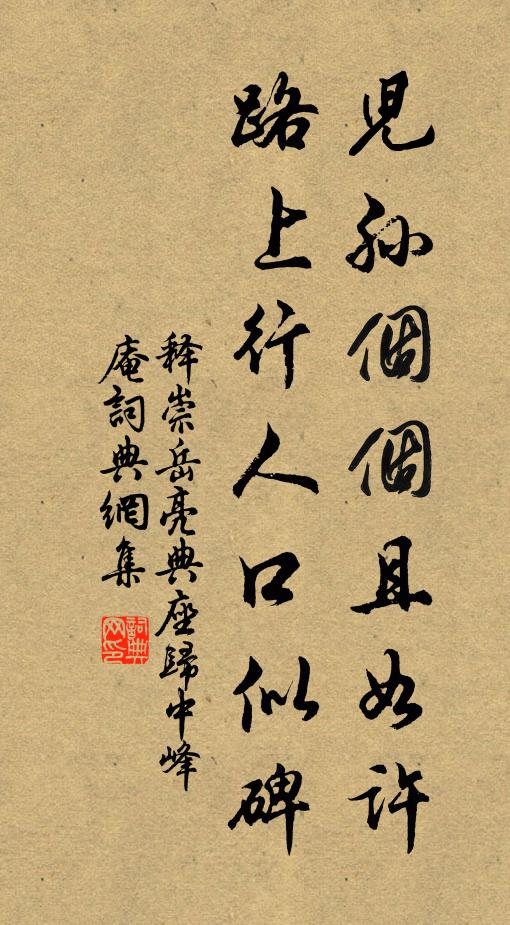 兒孫個個且如許
路上行人口似碑
釋崇岳亮典座歸中峰
庵詞典網集
詞典網印